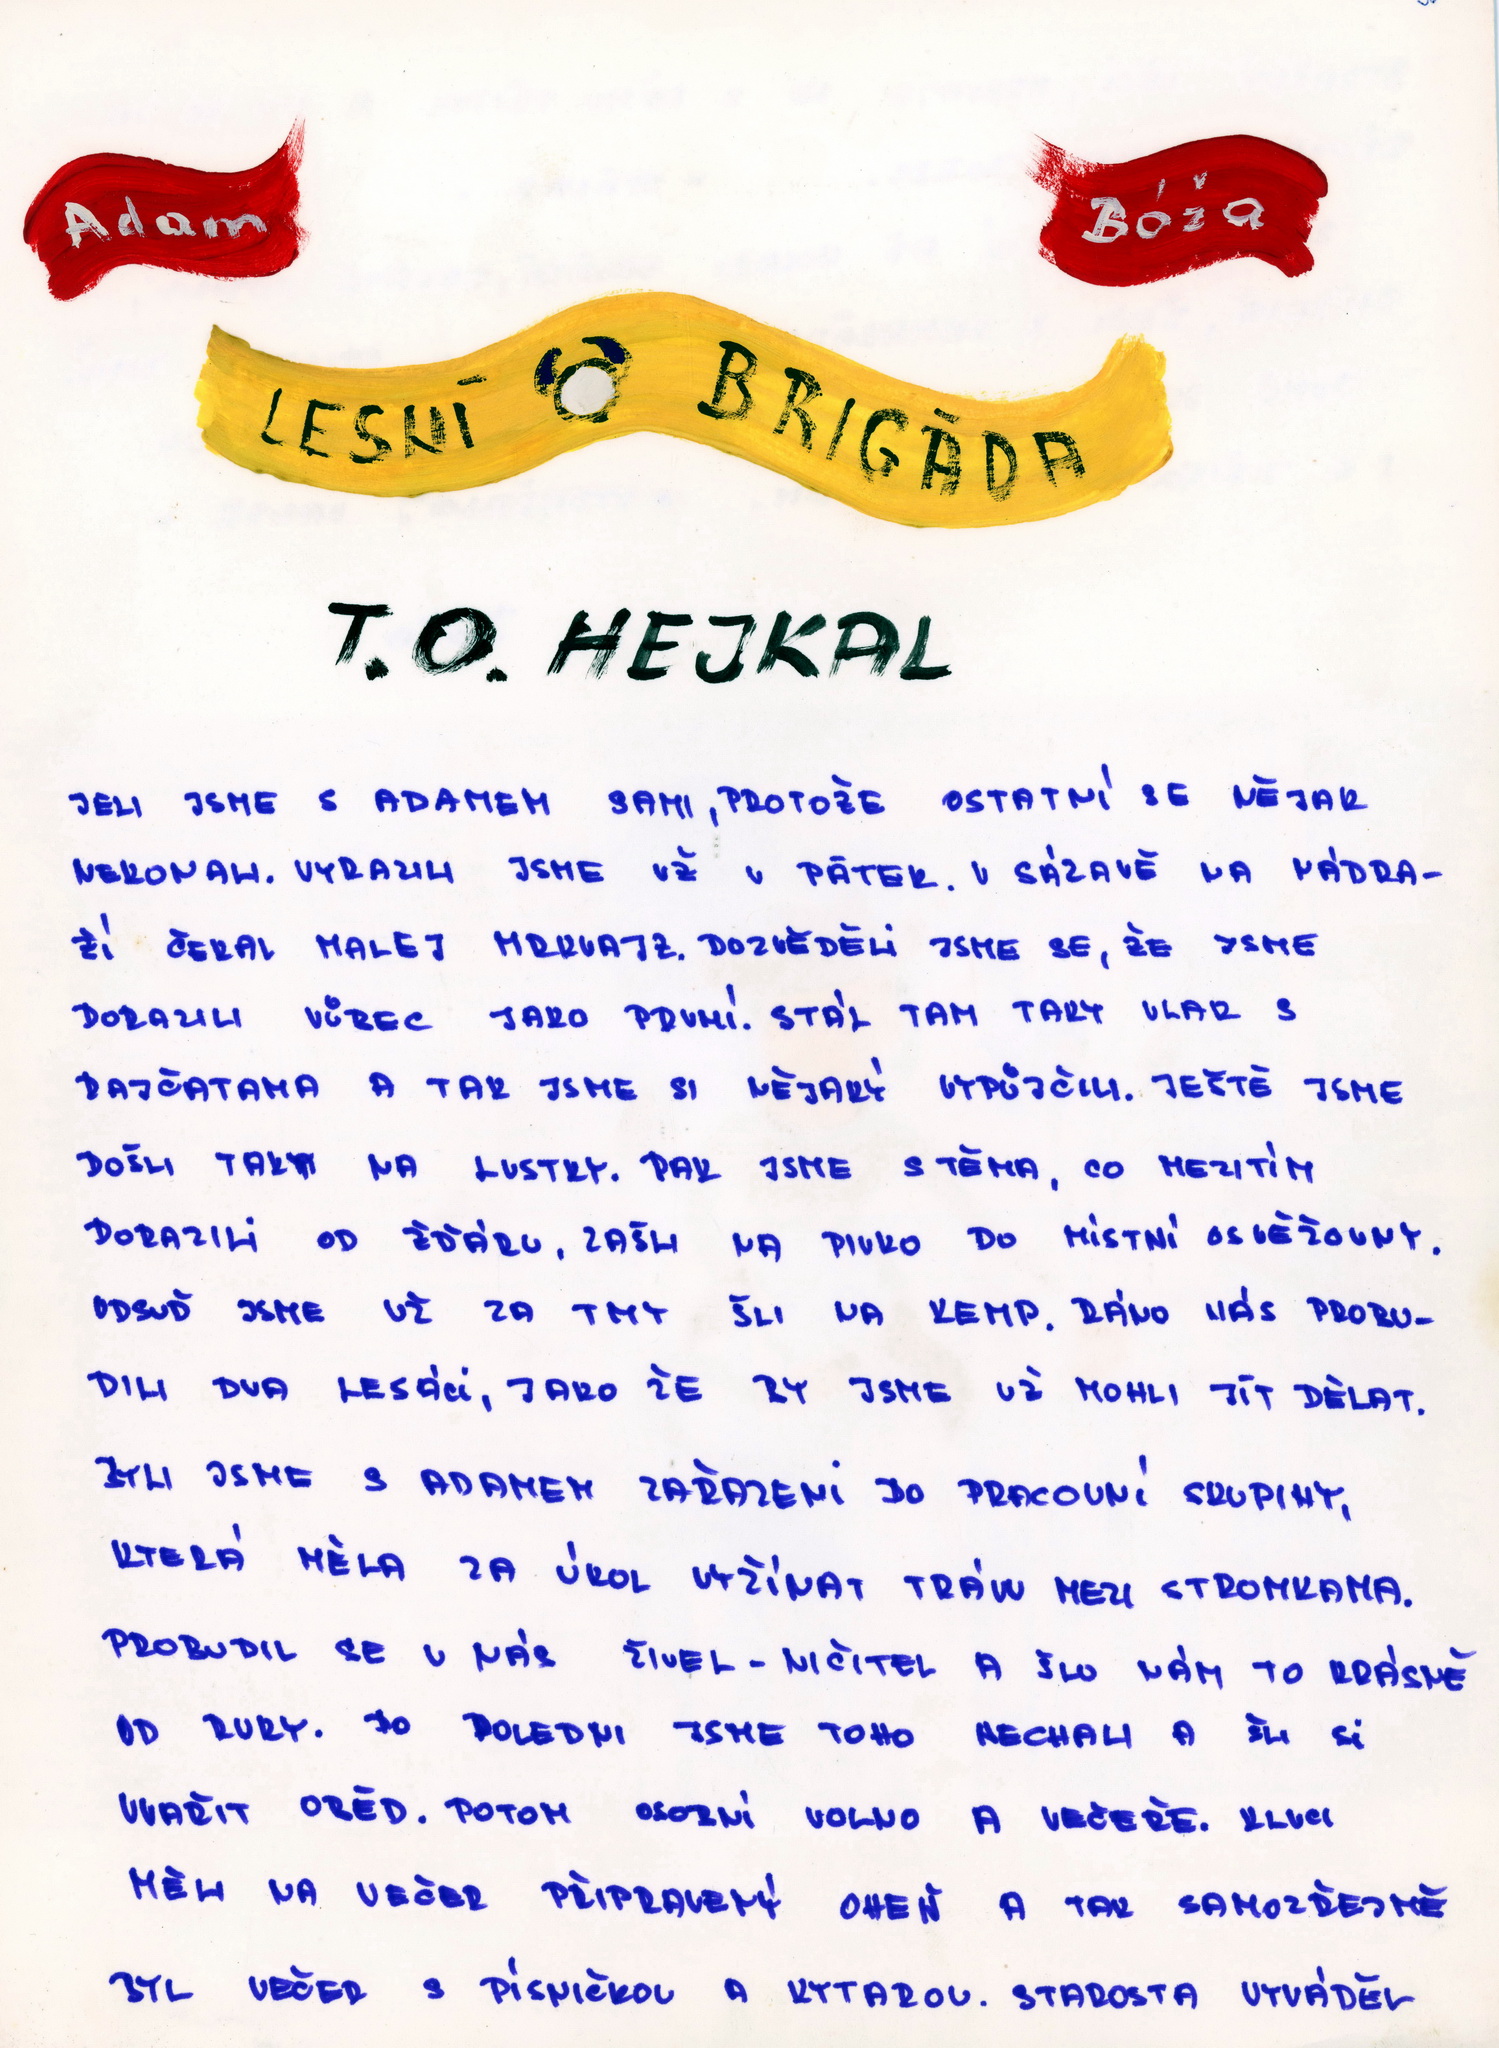 Adam
Bóža
LESNÍ BRIGÁDA
T.O. HEJKAL
JELI JSME S ADAMEM SAMI, PROTOŽE OSTATNÍ SE NĚJAK
NEKONALI. VYRAZILI JSME UŽ V PÁTEK. V SÁZAVĚ NA NÁDRA-
ŽÍ ČEKAL MALEJ MRKVAJZ. DOZVĚDĚLI JSME SE, ŽE JSME
DORAZILI VŮBEC JAKO PRVNÍ. STÁL TAM TAKY VLAK S
RAJČATAMA A TAK JSME SI NĚJAKÝ VYPŮJČILI. JEŠTĚ JSME
DOŠLI TAKY NA LUSTRY. PAK JSME S TĚMA, CO MEZITÍM
DORAZILI OD ŽĎÁRU, ZAŠLI NA PIVKO DO MÍSTNÍ OSVĚŽOVNY.
ODSUĎ JSME UŽ ZA TMY ŠLI NA KEMP. RÁNO NÁS PROBU-
DILI DVA LESÁCI, JAKO ŽE BY JSME UŽ MOHLI JÍT DĚLAT.
BYLI JSME S ADAMEM ZAŘAZENI DO PRACOVNÍ SKUPINY,
KTERÁ MĚLA ZA ÚKOL VYŽÍNAT TRÁVU MEZI STROMKAMA.
PROBUDIL SE V NÁS ŽIVEL-NIČITEL A ŠLO NÁM TO KRÁSNĚ
OD RUKY. DO POLEDNI JSME TOHO NECHALI A ŠLI SI
UVAŘIT OBĚD. POTOM OSOBNÍ VOLNO A VEČEŘE. KLUCI
MĚLI NA VEČER PŘIPRAVENÝ OHEŇ A TAK SAMOZŘEJMĚ
BYL VEČER S PÍSNIČKOU A KYTAROU. STAROSTA VYVÁDĚL